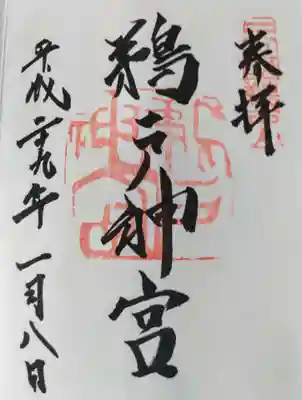 奉拝
鵜戸神宮
平成二十九年 一月八日